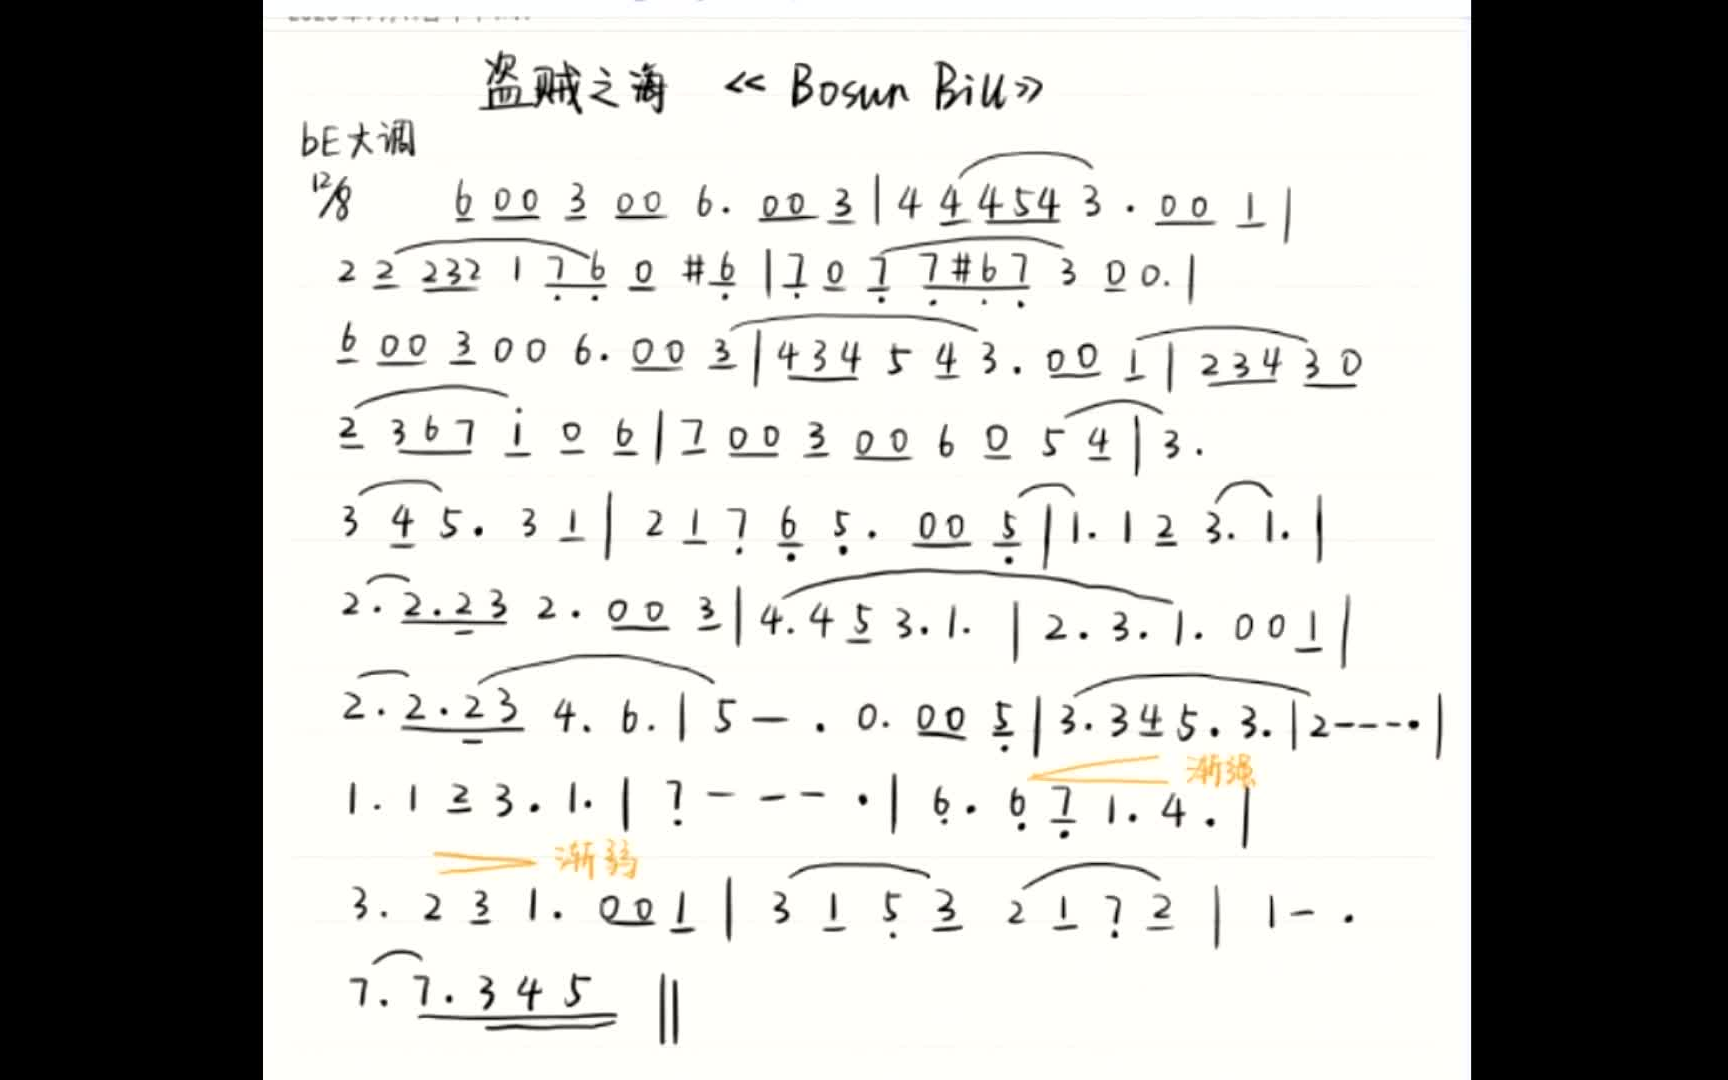 盗贼之海 《Bosun Bill》
bE大调
12/8 6 0 0 3 0 0 6. 0 0 3 | 4 4 4 5 4 3. 0 0 1 |
2 2 2 3 2 1 7 6 0 #6 | 7 0 7 7 #6 7 3 0 0. |
6 0 0 3 0 0 6. 0 0 3 | 4 3 4 5 4 3. 0 0 1 | 2 3 4 3 0
2 3 6 7 i 0 6 | 7 0 0 3 0 0 6 0 5 4 | 3.
3 4 5. 3 1 | 2 1 7 6 5. 0 0 5 | 1. 1 2 3. 1. |
2. 2. 2 3 2. 0 0 3 | 4. 4 5 3. 1. | 2. 3. 1. 0 0 1 |
2. 2. 2 3 4. 6. | 5 - . 0. 0 0 5 | 3. 3 4 5. 3. | 2 - - - . |
渐强
1. 1 2 3. 1. | 7 - - - . | 6. 6 7 1. 4. |
渐弱
3. 2 3 1. 0 0 1 | 3 1 5 3 2 1 7 2 | 1 - .
7. 7. 3 4 5 ||